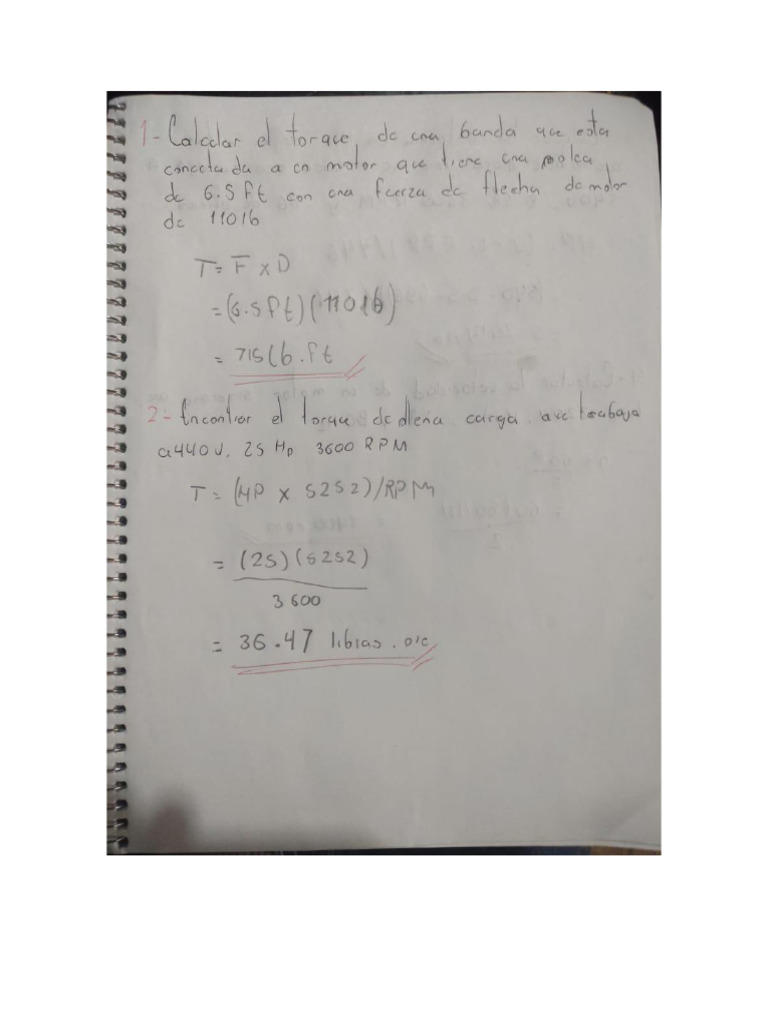 1- Calcular el torque de una banda que esta
conectada a un motor que tiene una polea
de 6.5 ft con una fuerza de flecha de motor
de 110 lb
T= F x D
= (6.5 ft)(110 lb)
= 715 lb.ft
2- Encontrar el torque de plena carga que trabaja
a 440 v, 25 Hp 3600 RPM
T = (HP x 5252)/RPM
= (25)(5252)
3600
= 36.47 libras.pie